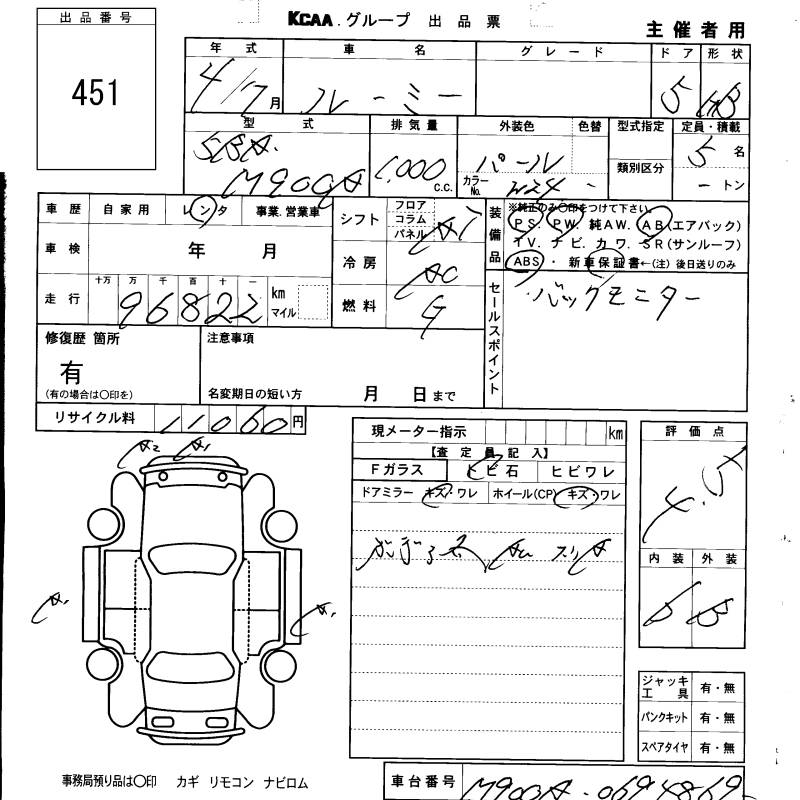 出品番号
451
KCAA.グループ 出品票
主催者用
年式 車名 グレード ドア 形状
4/7月 ルーミー 5 HB
型式 排気量 外装色 色替 型式指定 定員・積載
5BA.
M900A 1,000 c.c. パール 5名
カラーNo. W24 - 類別区分 -トン
車歴 自家用 レンタ 事業.営業車
シフト フロア コラム パネル AT
装備品 ※純正のみ〇印をつけて下さい。
PS. PW. 純AW. AB(エアバック)
TV. ナビ. カワ. SR(サンルーフ)
ABS・ 新車保証書←(注) 後日送りのみ
車検 年 月
冷房 AC
走行 十万 万 千 百 十 一
96822 km マイル
燃料 G
セールスポイント バックモニター
修復歴 箇所
有
(有の場合は〇印を)
注意事項
名変期日の短い方 月 日まで
リサイクル料 11060円
現メーター指示 km
評価点
【査定員記入】
Fガラス トビ石 ヒビワレ
ドアミラー キズ・ワレ ホイール(CP) キズ・ワレ
4.5
内装 外装
B B
A2 A1
A1 A1
ジャッキ工具 有・無
パンクキット 有・無
スペアタイヤ 有・無
事務局預り品は〇印 カギ リモコン ナビロム
車台番号 M900A-0694869